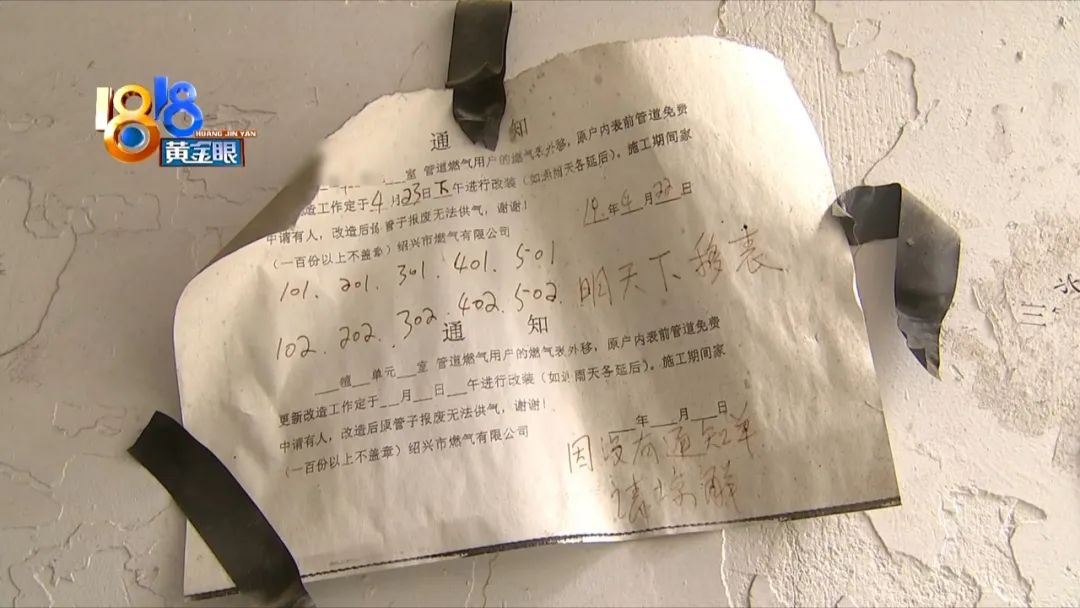 1818
HUANG JIN YAN
黄金眼
通 知
室 管道燃气用户的燃气表外移，原户内表前管道免费
造工作定于4月23日下午进行改装（如遇雨天各延后）。施工期间家
中请有人，改造后该管子报废无法供气，谢谢！
19年4月22日
（一百份以上不盖章）绍兴市燃气有限公司
101. 201. 301. 401. 501
102. 202. 302. 402. 502.
明天下移表
通 知
___幢__单元__室 管道燃气用户的燃气表外移，原户内表前管道免费
更新改造工作定于__月__日__午进行改装（如遇雨天各延后）。施工期间家
中请有人，改造后该管子报废无法供气，谢谢！
___年___月___日
（一百份以上不盖章）绍兴市燃气有限公司
因没有通知单
请谅解
三